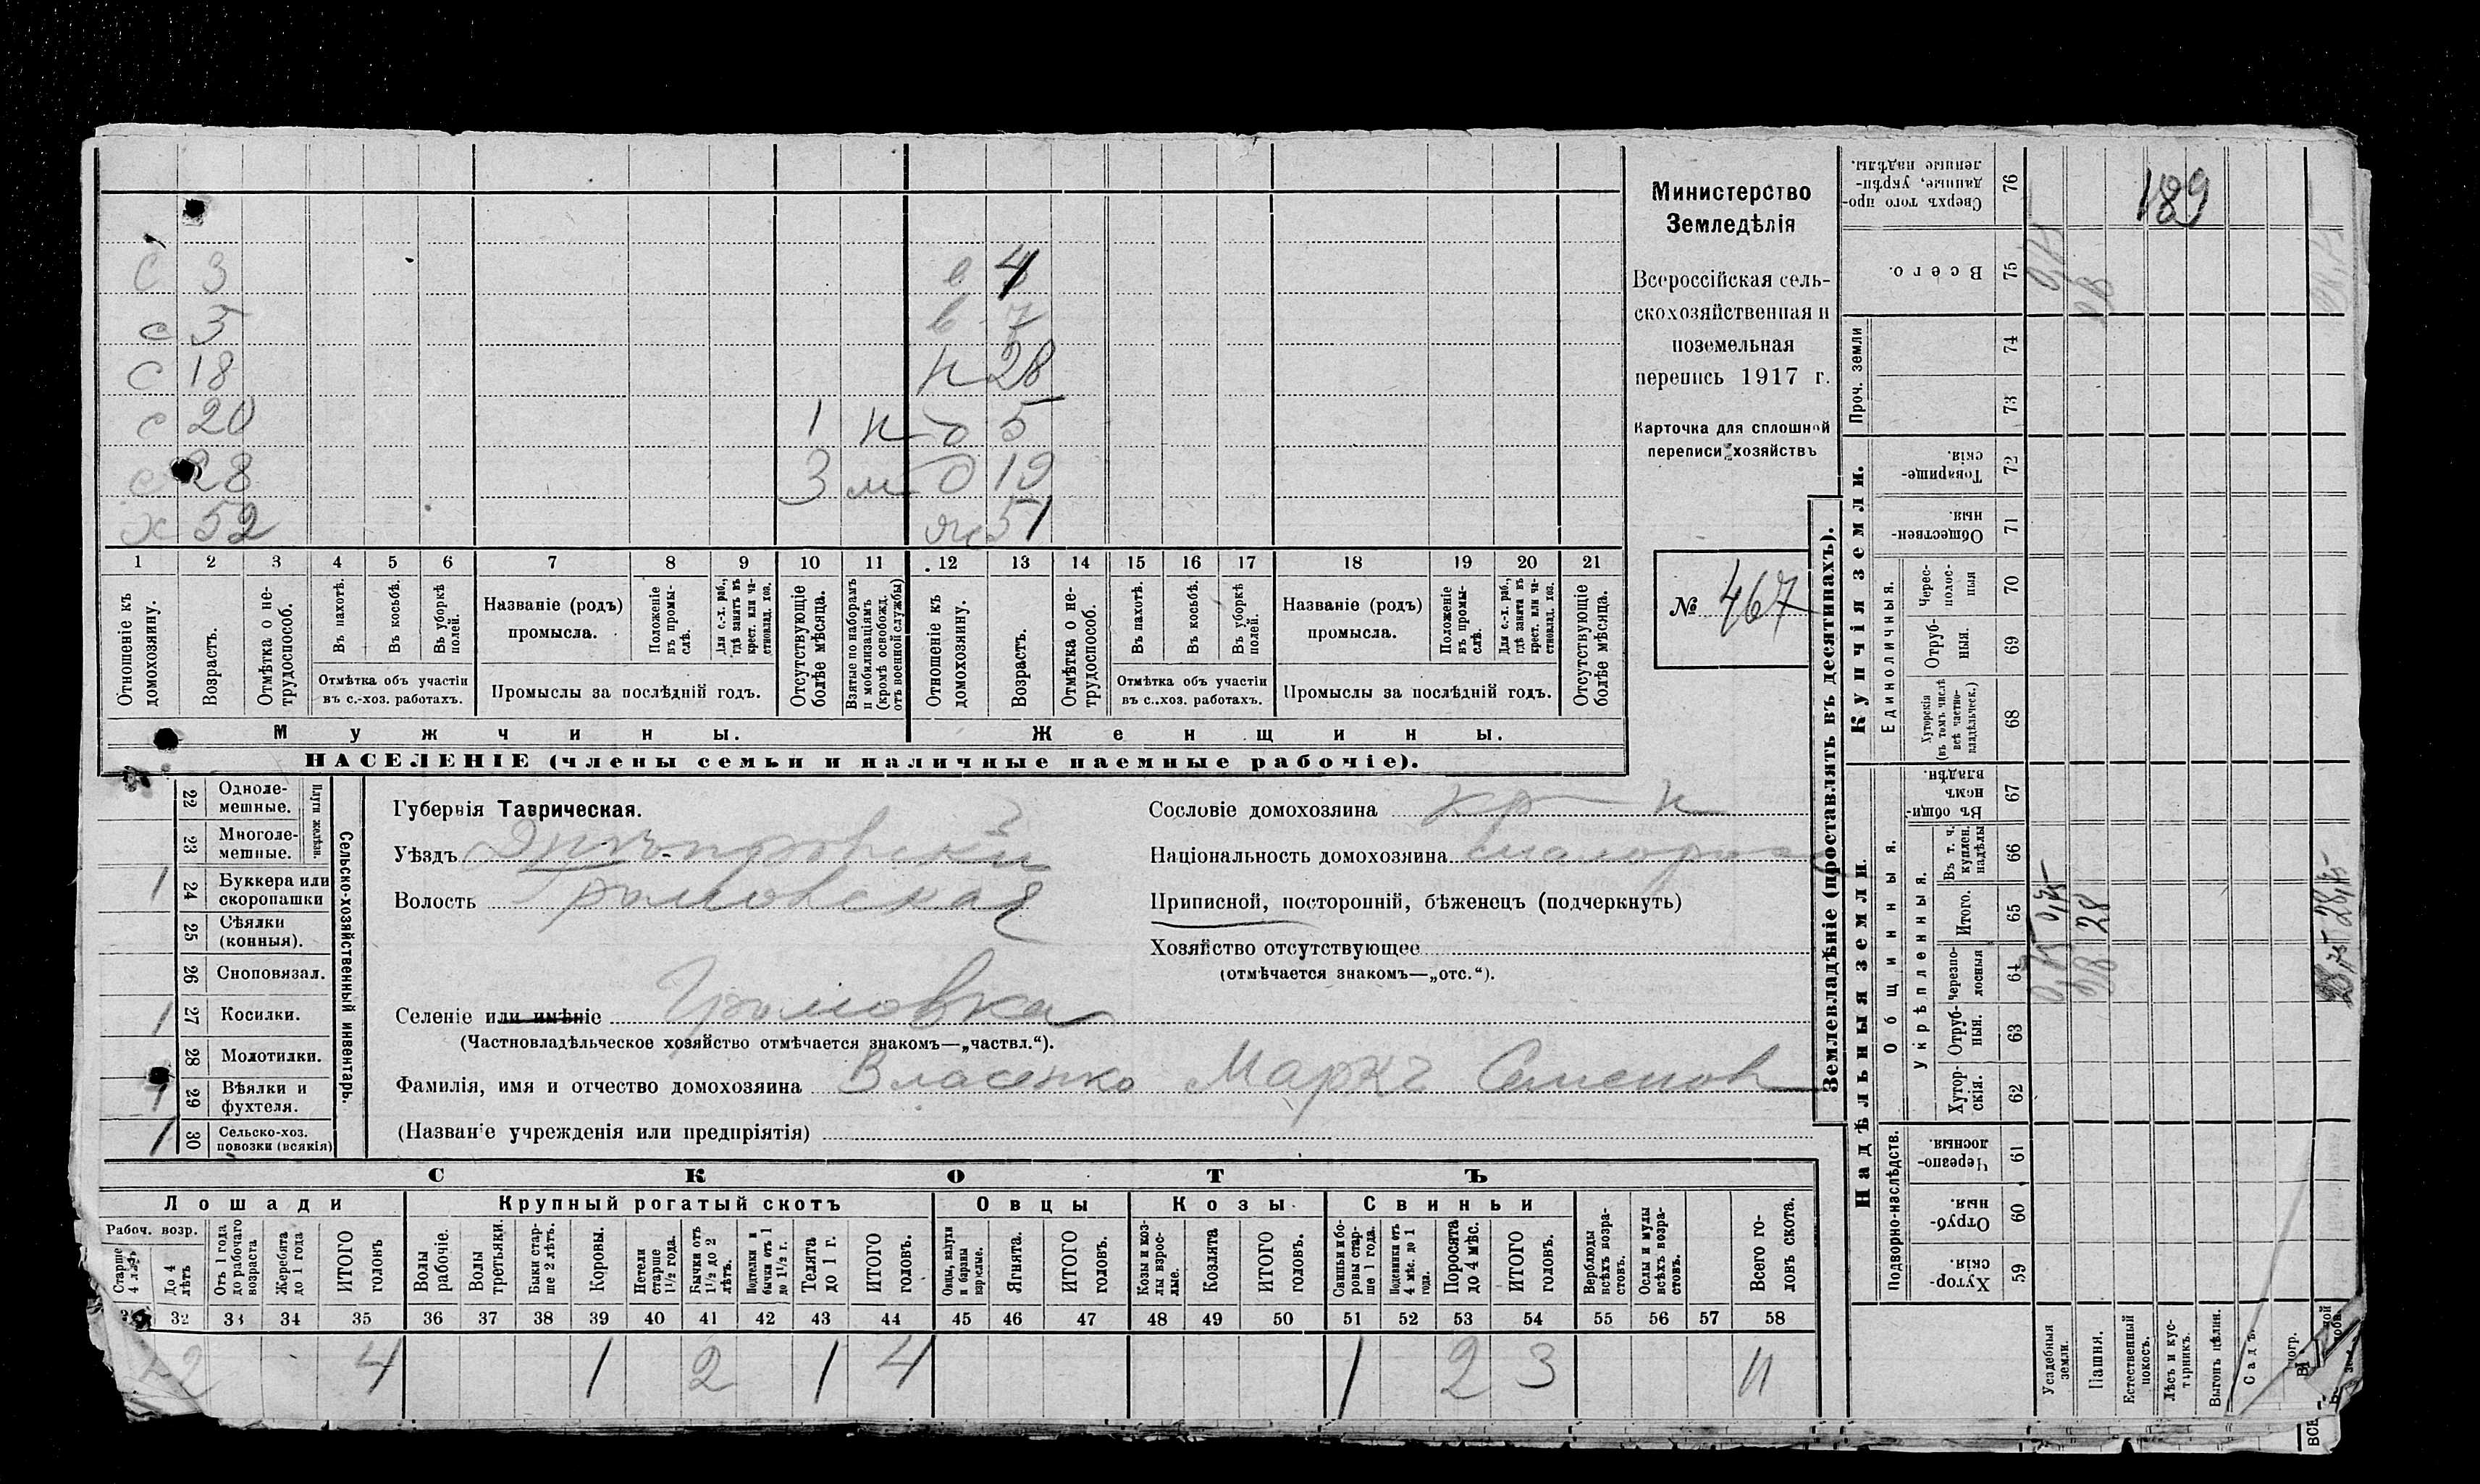 189
Министерство
Земледѣлія
Всероссійская сель-
скохозяйственная и
поземельная
перепись 1917 г.
Карточка для сплошной
переписи хозяйствъ
№ 467
с 3 в 4
с 5 в 7
с 18 н 28
с 20 1 н д 5
с 28 3 м д 19
х 52 ж 51
1 2 3 4 5 6 7 8 9 10 11 12 13 14 15 16 17 18 19 20 21
Отношеніе къ домохозяину.
Возрастъ.
Отмѣтка о не-трудоспособ.
Въ пахотѣ.
Въ косьбѣ.
Въ уборкѣ полей.
Отмѣтка объ участіи
въ с.-хоз. работахъ.
Названіе (родъ)
промысла.
Положеніе въ промы-слѣ.
Для с.-х. раб., гдѣ занятъ въ крест. или ча-стновлад. хоз.
Промыслы за послѣдній годъ.
Отсутствующіе болѣе мѣсяца.
Взятые по наборамъ и мобилизаціямъ (кромѣ освобожд. отъ военной службы)
Отношеніе къ домохозяину.
Возрастъ.
Отмѣтка о не-трудоспособ.
Въ пахотѣ.
Въ косьбѣ.
Въ уборкѣ полей.
Отмѣтка объ участіи
въ с..хоз. работахъ.
Названіе (родъ)
промысла.
Положеніе въ промы-слѣ.
Для с.-х. раб., гдѣ занята въ крест. или ча-стновлад. хоз.
Промыслы за послѣдній годъ.
Отсутствующіе болѣе мѣсяца.
Мужчины. Женщины.
НАСЕЛЕНІЕ (члены семьи и наличные наемные рабочіе).
Сельско-хозяйственный инвентарь.
Плуги желѣзн.
22 Одноле-мешные.
23 Многоле-мешные.
1 24 Буккера или скоропашки
25 Сѣялки (конныя).
26 Сноповязал.
1 27 Косилки.
28 Молотилки.
1 29 Вѣялки и фухтеля.
1 30 Сельско-хоз. повозки (всякія)
Губернія Таврическая.
Уѣздъ Днѣпровскій
Волость Громовская
Селеніе или имѣніе Громовка
(Частновладѣльческое хозяйство отмѣчается знакомъ—„частвл.“).
Фамилія, имя и отчество домохозяина Власенко Маркъ Семенов
(Названіе учрежденія или предпріятія)
Сословіе домохозяина кр-н
Національность домохозяина малоросс
Приписной, посторонній, бѣженецъ (подчеркнуть)
Хозяйство отсутствующее
(отмѣчается знакомъ—„отс.“).
СКОТЪ
Лошади Крупный рогатый скотъ Овцы Козы Свиньи
Рабоч. возр.
Старше 4 лѣтъ
До 4 лѣтъ
Отъ 1 года до рабочаго возраста
Жеребята до 1 года
ИТОГО головъ
Волы рабочіе.
Волы третьяки.
Быки стар-ше 2 лѣтъ.
Коровы.
Петели старше 1½ года.
Бычки отъ 1½ до 2 лѣтъ.
Подтелки и бычки отъ 1 до 1½ г.
Телята до 1 г.
ИТОГО головъ.
Овцы, валухи и бараны взрослые.
Ягнята.
ИТОГО головъ.
Козы и коз-лы взрос-лые.
Козлята
ИТОГО головъ.
Свиньи и бо-ровы стар-ше 1 года.
Подсвинки отъ 4 мѣс. до 1 года.
Поросята до 4 мѣс.
ИТОГО головъ.
Верблюды всѣхъ возра-стовъ.
Ослы и мулы всѣхъ возра-стовъ.
Всего го-ловъ скота.
32 33 34 35 36 37 38 39 40 41 42 43 44 45 46 47 48 49 50 51 52 53 54 55 56 57 58
2 4 1 2 1 4 1 2 3 11
Землевладѣніе (проставлять въ десятинахъ).
Надѣльныя земли.
Подворно-наслѣдств.
Хутор-скія. 59
Отруб-ныя. 60
Черезпо-лосныя. 61
Общинныя.
Укрѣпленныя.
Хутор-скія. 62
Отруб-ныя. 63
Черезпо-лосныя 64
Итого. 65
Въ т. ч. куплен. надѣлы 66
Въ общи-номъ владѣн. 67
Купчія земли.
Единоличныя.
Хуторскія (въ томъ числѣ всѣ частно-владѣльческ.) 68
Отруб-ныя. 69
Черес-полос-ныя 70
Обществен-ныя. 71
Товарище-скія. 72
Проч. земли
73 74
Всего. 75
Сверхъ того про-данные, укрѣп-ленные надѣлы. 76
Усадебныя земли.
Пашня.
28
Естественный покосъ.
Лѣсъ и кус-тарникъ.
Выгонъ цѣлин.
Садъ